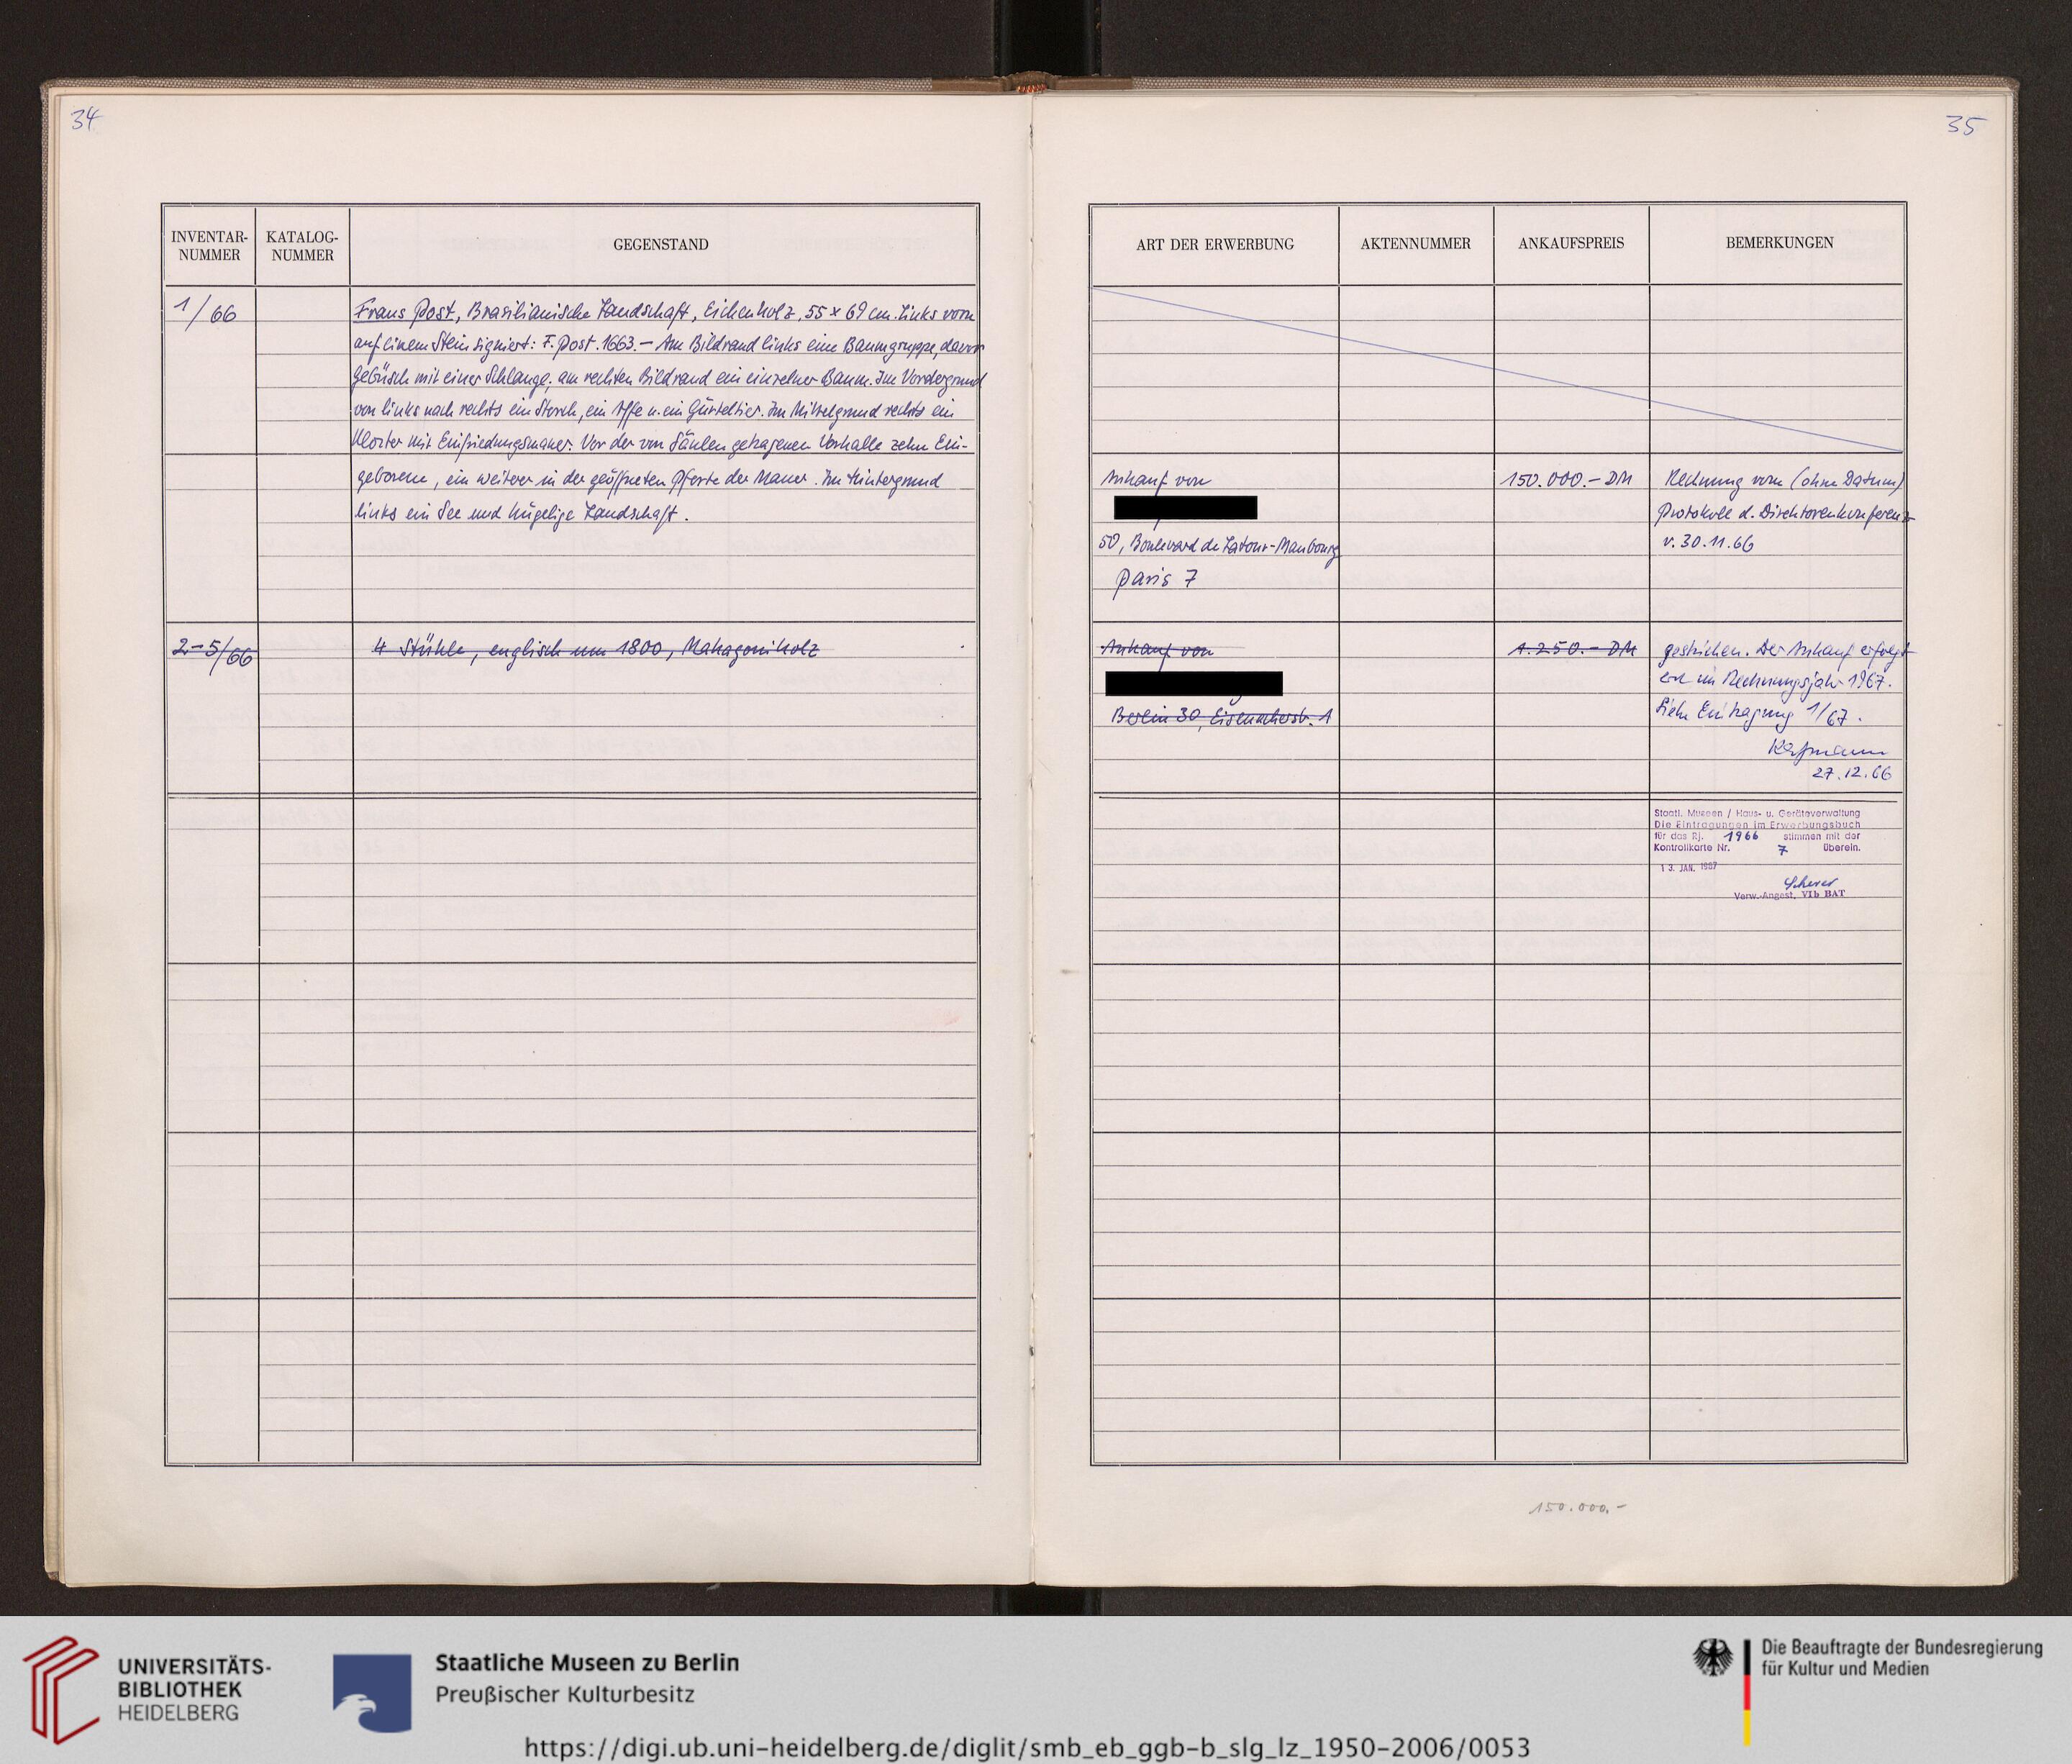 34
INVENTAR-
NUMMER
KATALOG-
NUMMER
GEGENSTAND
1/66
Frans Post, Brasilianische Landschaft, Eichenholz, 55 x 69 cm. Links vorn
auf einem Stein signiert: F. Post. 1663. – Am Bildrand links eine Baumgruppe, davor
Gebüsch mit einer Schlange, am rechten Bildrand ein einzelner Baum. Im Vordergrund
von links nach rechts ein Storch, ein Affe u. ein Gürteltier. Im Mittelgrund rechts ein
Kloster mit Einfriedungsmauer. Vor der von Säulen getragenen Vorhalle zehn Ein-
geborene, ein weiterer in der geöffneten Pforte der Mauer. Im Hintergrund
links ein See und hügelige Landschaft.
2-5/66
4 Stühle, englisch um 1800, Mahagoniholz
35
ART DER ERWERBUNG
AKTENNUMMER
ANKAUFSPREIS
BEMERKUNGEN
Ankauf von
50, Boulevard de Latour-Maubourg
Paris 7
150.000.- DM
Rechnung vom (ohne Datum)
Protokoll d. Direktorenkonferenz
v. 30.11.66
Ankauf von
Berlin 30, Eisenacherstr. 1
1.250.- DM
gestrichen. Der Ankauf erfolgt
erst im Rechnungsjahr 1967.
Siehe Eintragung 1/67.
27.12.66
Staatl. Museen / Haus- u. Geräteverwaltung
Die Eintragungen im Erwerbungsbuch
für das Rj. 1966 stimmen mit der
Kontrollkarte Nr. 7 überein.
13. JAN. 1967
Scherer
Verw.-Angest. VIb BAT
150.000.-
UNIVERSITÄTS-
BIBLIOTHEK
HEIDELBERG
Staatliche Museen zu Berlin
Preußischer Kulturbesitz
Die Beauftragte der Bundesregierung
für Kultur und Medien
https://digi.ub.uni-heidelberg.de/diglit/smb_eb_ggb-b_slg_lz_1950-2006/0053